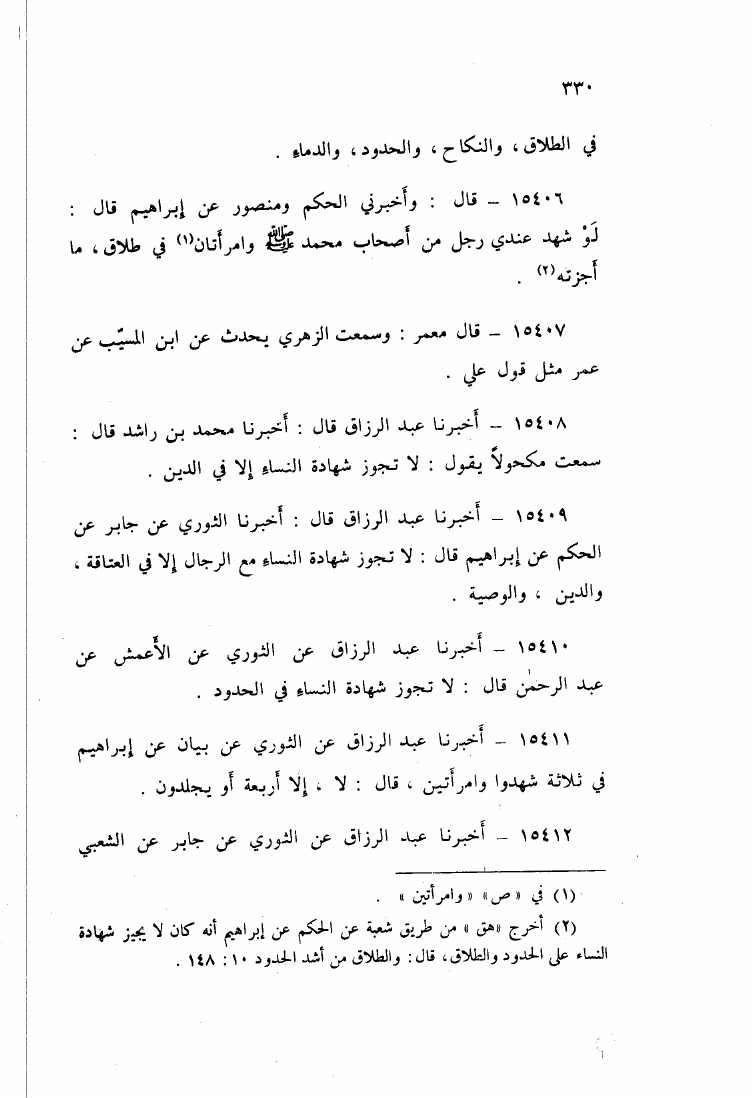 ٣٣٠
في الطلاق ، والنكاح ، والحدود ، والدماء .
١٥٤٠٦ – قال : وأخبرني الحكم ومنصور عن إبراهيم قال :
لَوْ شهد عندي رجل من أصحاب محمد ﷺ وامرأتان(١) في طلاق ، ما
أجزته(٢) .
١٥٤٠٧ – قال معمر : وسمعت الزهري يحدث عن ابن المسيّب عن
عمر مثل قول علي .
١٥٤٠٨ – أخبرنا عبد الرزاق قال : أخبرنا محمد بن راشد قال :
سمعت مكحولاً يقول : لا تجوز شهادة النساء إلا في الدين .
١٥٤٠٩ – أخبرنا عبد الرزاق قال : أخبرنا الثوري عن جابر عن
الحكم عن إبراهيم قال : لا تجوز شهادة النساء مع الرجال إلا في العتاقة ،
والدين ، والوصية .
١٥٤١٠ – أخبرنا عبد الرزاق عن الثوري عن الأعمش عن
عبد الرحمٰن قال : لا تجوز شهادة النساء في الحدود .
١٥٤١١ – أخبرنا عبد الرزاق عن الثوري عن بيان عن إبراهيم
في ثلاثة شهدوا وامرأتين ، قال : لا ، إلا أربعة أو يجلدون .
١٥٤١٢ – أخبرنا عبد الرزاق عن الثوري عن جابر عن الشعبي
(١) في «ص» «وامرأتين» .
(٢) أخرج «هق» من طريق شعبة عن الحكم عن إبراهيم أنه كان لا يجيز شهادة
النساء على الحدود والطلاق، قال: والطلاق من أشد الحدود ١٠: ١٤٨ .